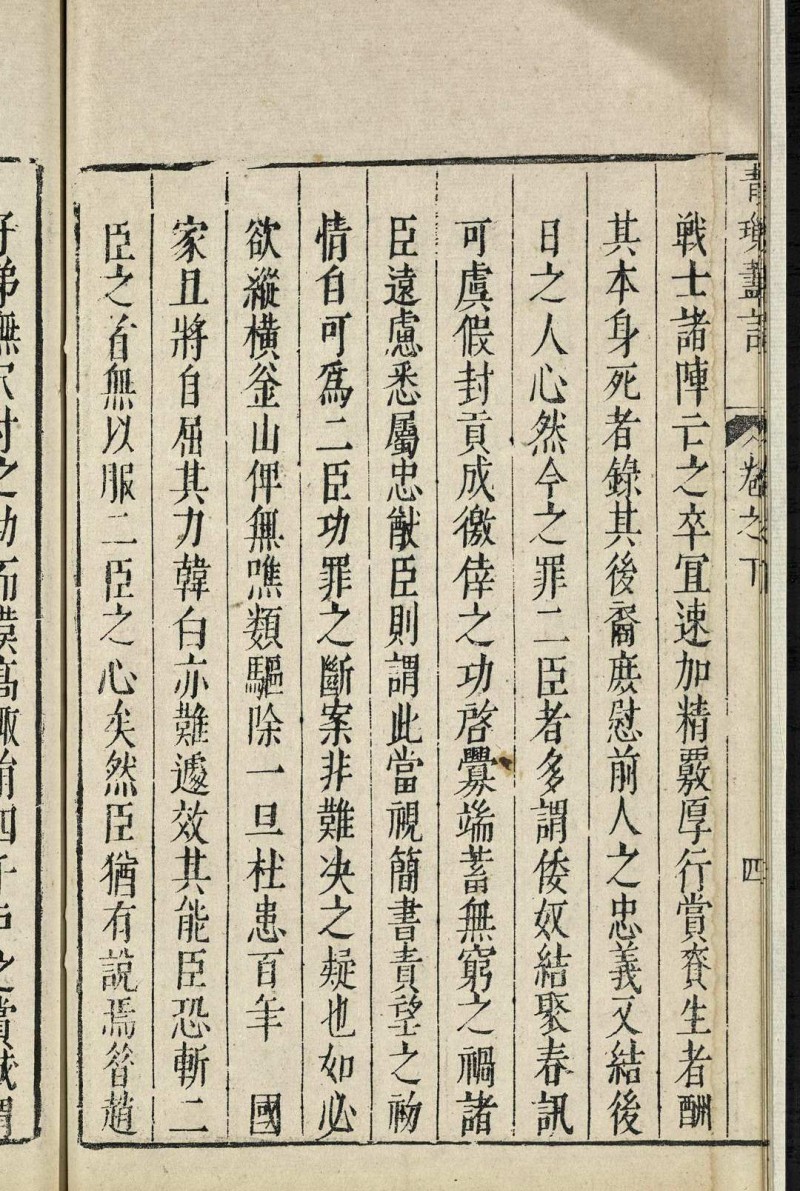 青瑣藎言
卷之下
四
戰士諸陣亡之卒宜速加精覈厚行賞賚生者酬
其本身死者錄其後裔庶慰前人之忠義又結後
日之人心然今之罪二臣者多謂倭奴結聚春訊
可虞假封貢成徼倖之功啓釁端蓄無窮之禍諸
臣遠慮悉屬忠猷臣則謂此當視簡書責望之初
情自可爲二臣功罪之斷案非難决之疑也如必
欲縱橫釡山俾無噍類驅除一旦杜患百年 國
家且將自屈其力韓白亦難遽效其能臣恐斬二
臣之首無以服二臣之心矣然臣猶有說焉昝趙